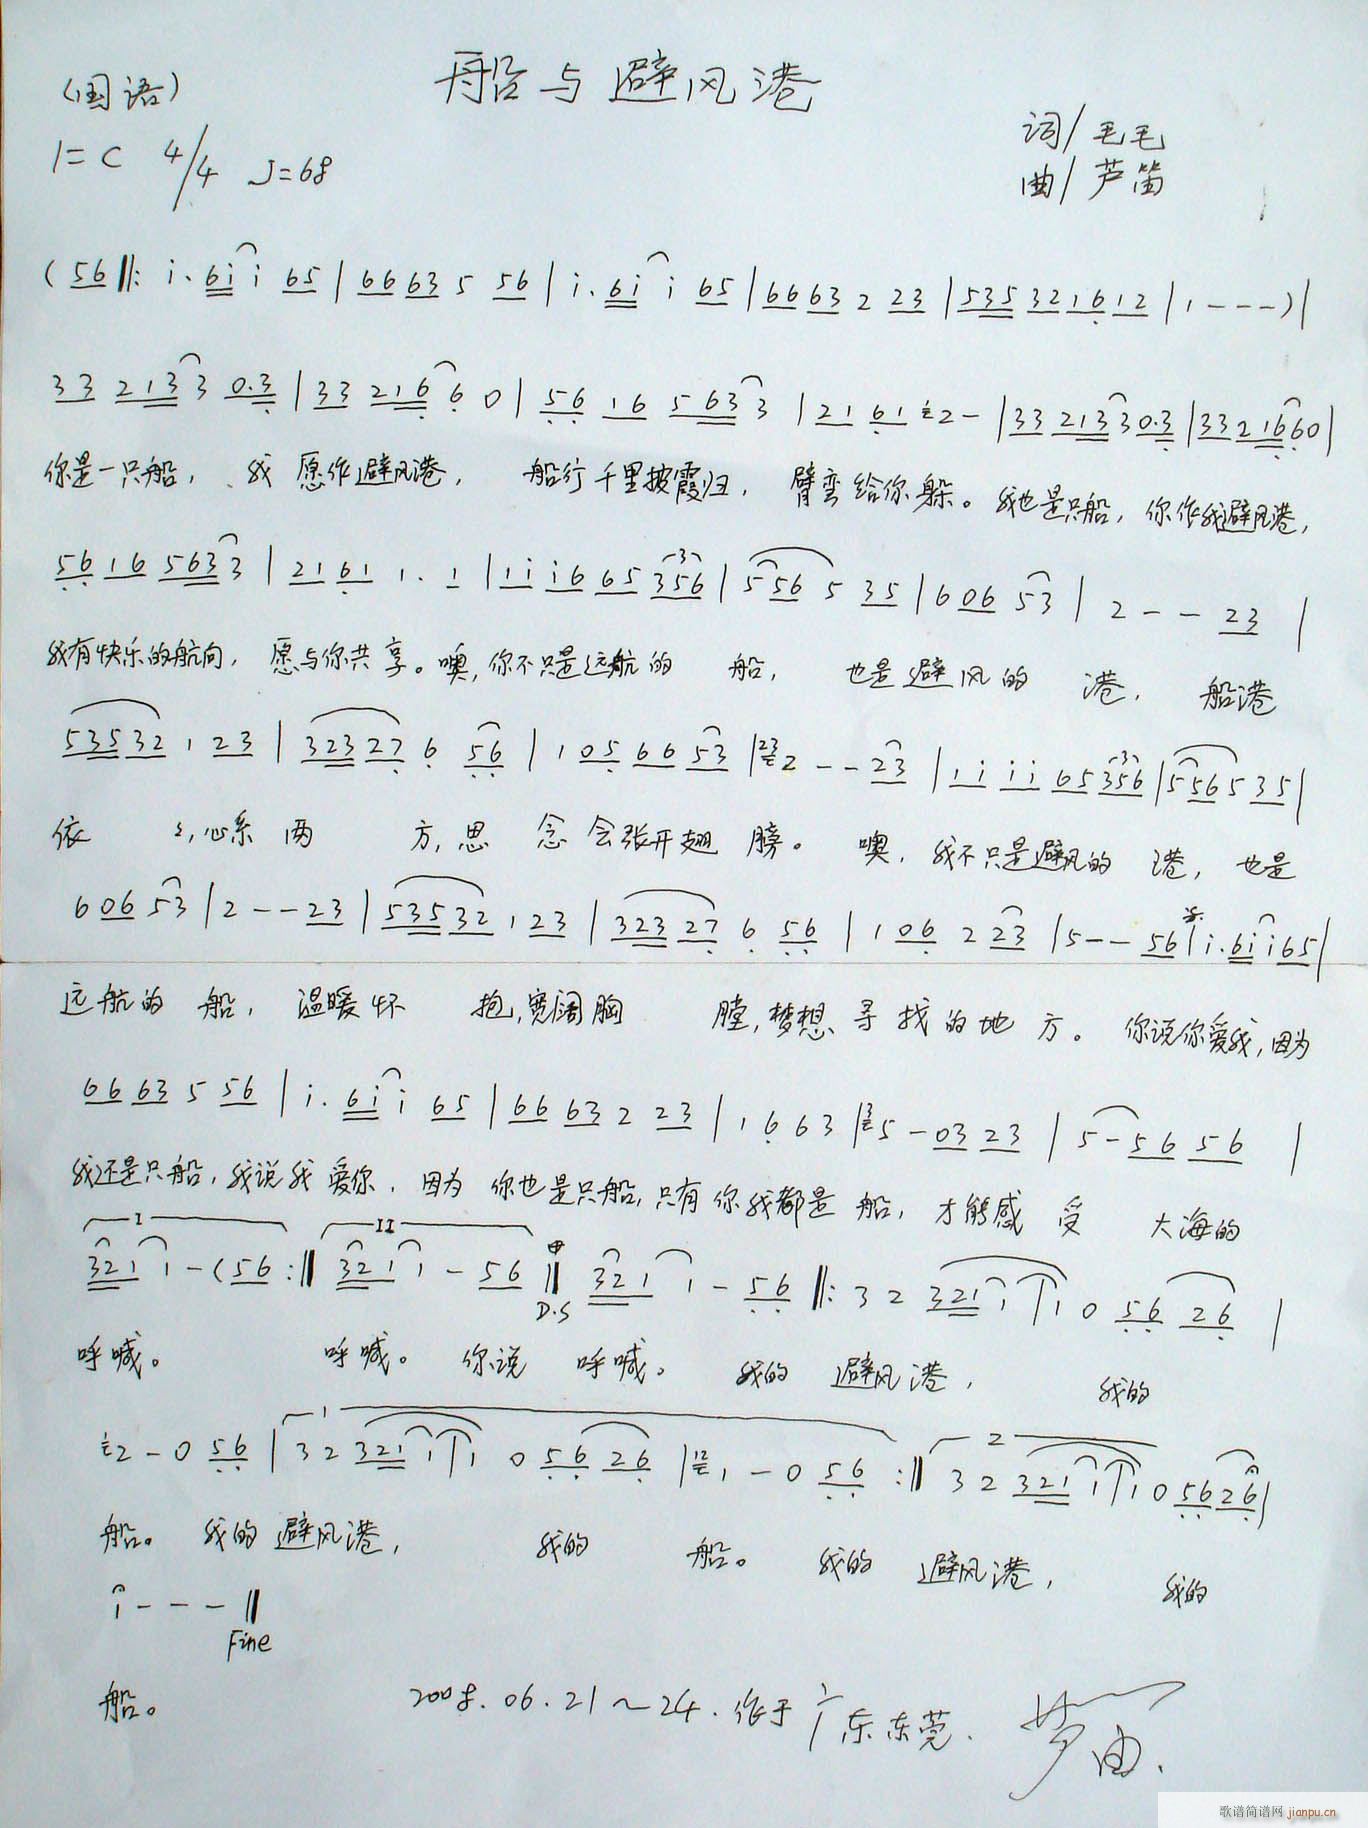 船与避风港
(国语)
1=C 4/4 ♩=68
词/毛毛
曲/芦笛
(56‖: i·6i i 65|66 63 5 56|i·6i i 65|66 63 2 23|535 32 16 12|1---)|
33 213 3 0·3|33 216 6 0|56 16 563 3|21 61 2-|33 213 3 0·3|33 216 6 0|
你是一只船，我愿作避风港，船行千里披霞归，臂弯给你躲。我也是只船，你作我避风港，
56 16 563 3|21 61 1·1|1i i6 65 356|5 56 5 35|6 06 53|2--23|
我有快乐的航向，愿与你共享。噢，你不只是远航的船，也是避风的港，船港
535 32 1 23|323 27 6 56|1 05 66 53|23 2--23|1i ii 65 356|5 56 5 35|
依 ，心系两方，思念会张开翅膀。噢，我不只是避风的港，也是
6 06 53|2--23|535 32 1 23|323 27 6 56|1 06 2 23|5--56|i·6i i 65|
远航的船，温暖怀抱，宽阔胸膛，梦想寻找的地方。你说你爱我，因为
66 63 5 56|i·6i i 65|66 63 2 23|1 6 6 3|3 5-03 23|5-56 56|
我还是只船，我说我爱你，因为你也是只船，只有你我都是船，才能感受大海的
I II
321 1-(56:‖321 1-56‖321 1-56‖:3 2 321 1|1 0 56 26|
D.S
呼喊。呼喊。你说呼喊。我的避风港，我的
2-0 56|3 2 321 1|1 0 56 26|12 1-0 56:‖3 2 321 1|1 0 56 26|
1 2
船。我的避风港，我的船。我的避风港，我的
i---‖
Fine
船。
2008.06.21～24.作于广东东莞.
歌谱简谱网 jianpu.cn